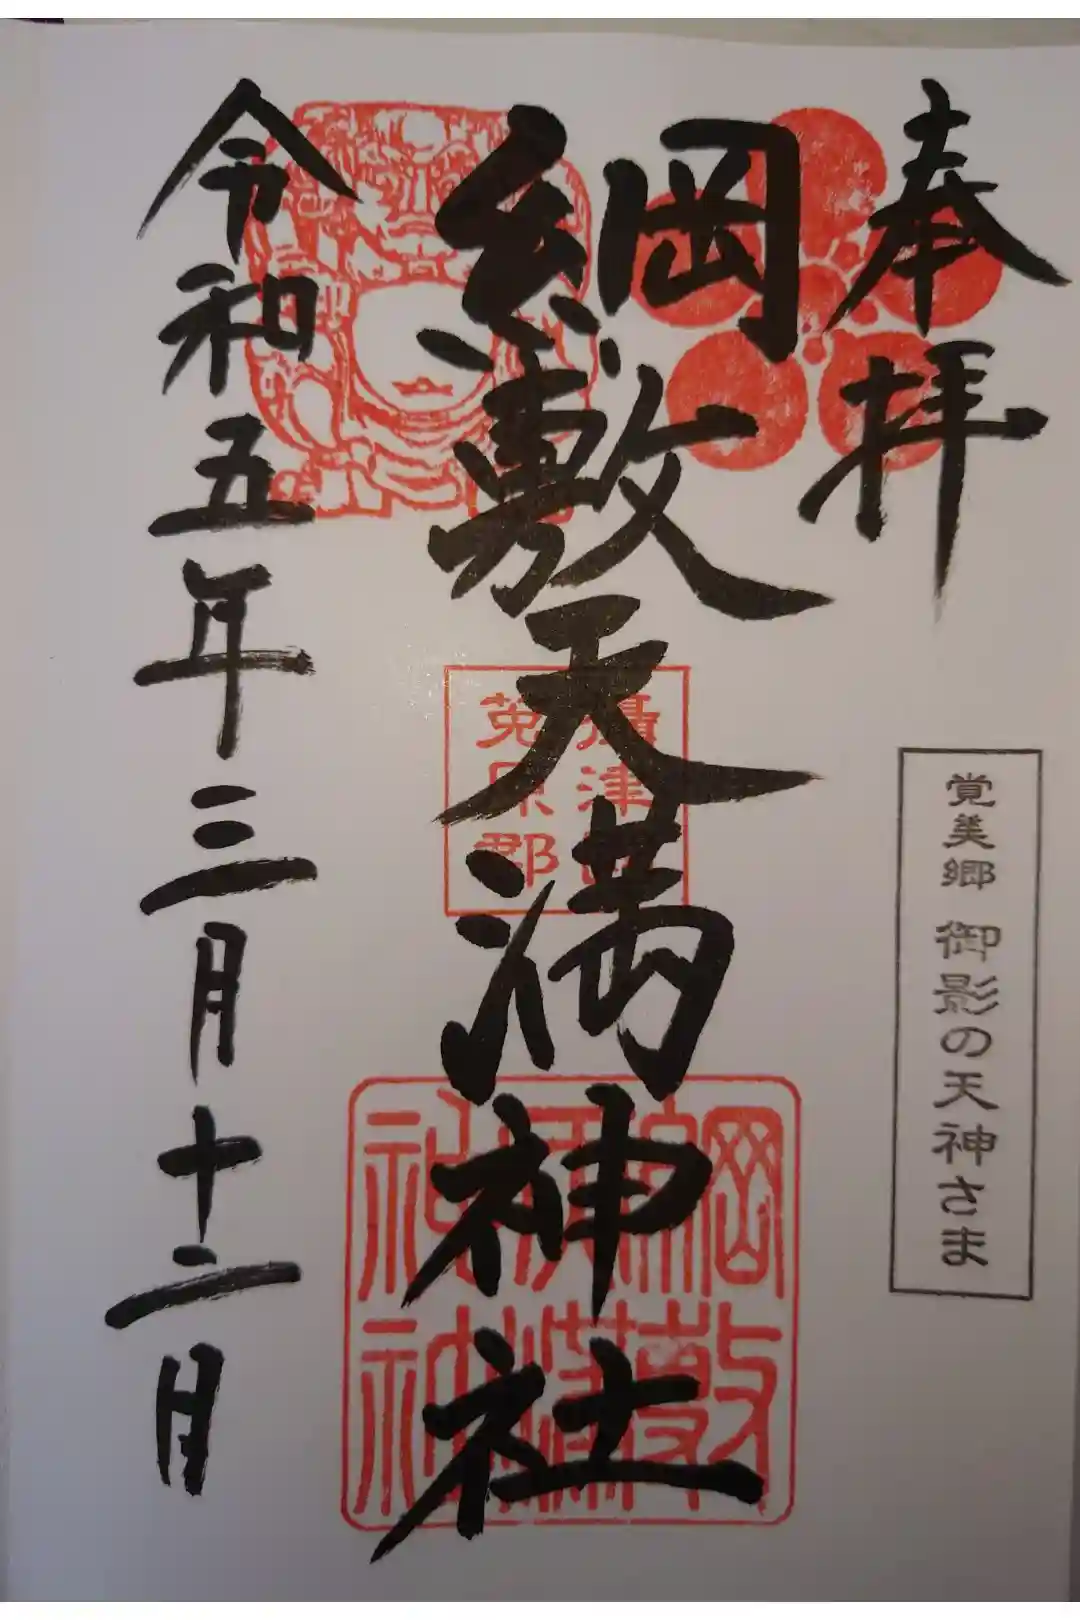 奉拝
覚美郷 御影の天神さま
綱敷天満神社
攝津国
菟原郡
綱敷
天満
神社
令和五年三月十二日